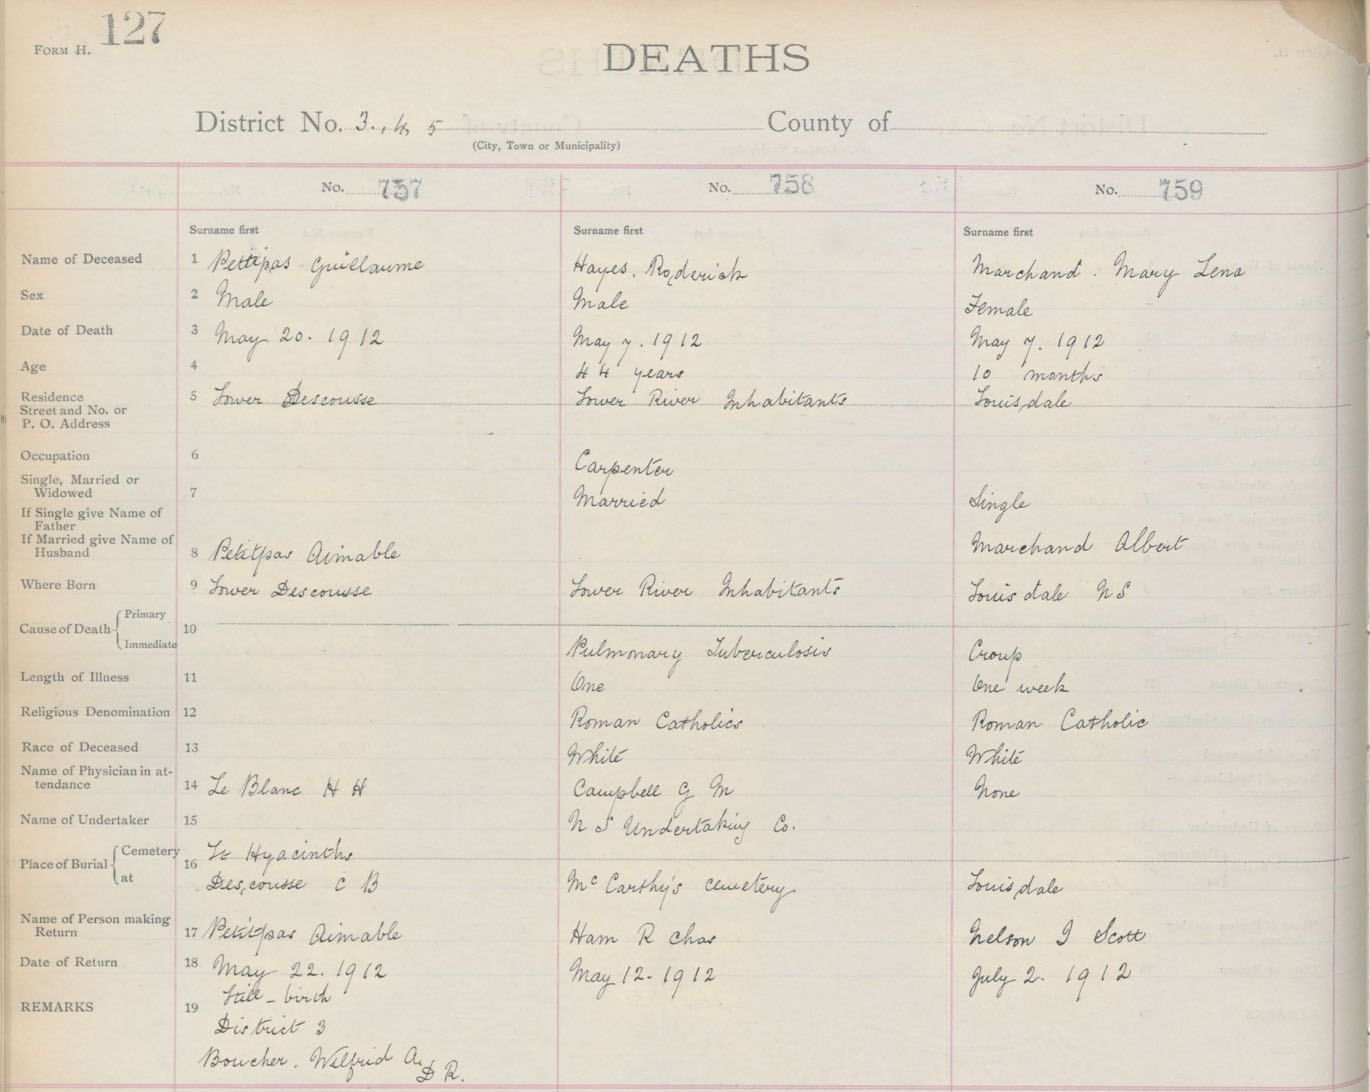 127
FORM H.
DEATHS
District No. 3., 4, 5 County of
(City, Town or Municipality)
No. 757 No. 758 No. 759
Surname first Surname first Surname first
Name of Deceased 1 Petitpas Guillaume Hayes. Roderick Marchand. Mary Lena
Sex 2 Male Male Female
Date of Death 3 May 20. 1912 May 7. 1912 May 7. 1912
Age 4 44 years 10 months
Residence 5 Lower Descousse Lower River Inhabitants Louisdale
Street and No. or
P. O. Address
Occupation 6 Carpenter
Single, Married or
Widowed 7 Married Single
If Single give Name of
Father
If Married give Name of
Husband 8 Petitpas Aimable Marchand Albert
Where Born 9 Lower Descousse Lower River Inhabitants Louisdale N S
Primary
Cause of Death 10
Immediate Pulmonary Tuberculosis Croup
Length of Illness 11 One One week
Religious Denomination 12 Roman Catholics Roman Catholic
Race of Deceased 13 White White
Name of Physician in at-
tendance 14 Le Blanc H H Campbell G M None
Name of Undertaker 15 N S Undertaking Co.
Cemetery St Hyacinths
Place of Burial 16
at Descousse C B McCarthy's cemetery Louisdale
Name of Person making
Return 17 Petitpas Aimable Ham R Chas Nelson J Scott
Date of Return 18 May 22. 1912 May 12-1912 July 2. 1912
REMARKS 19 Still-birth
District 3
Boucher. Wilfrid A.
D R.